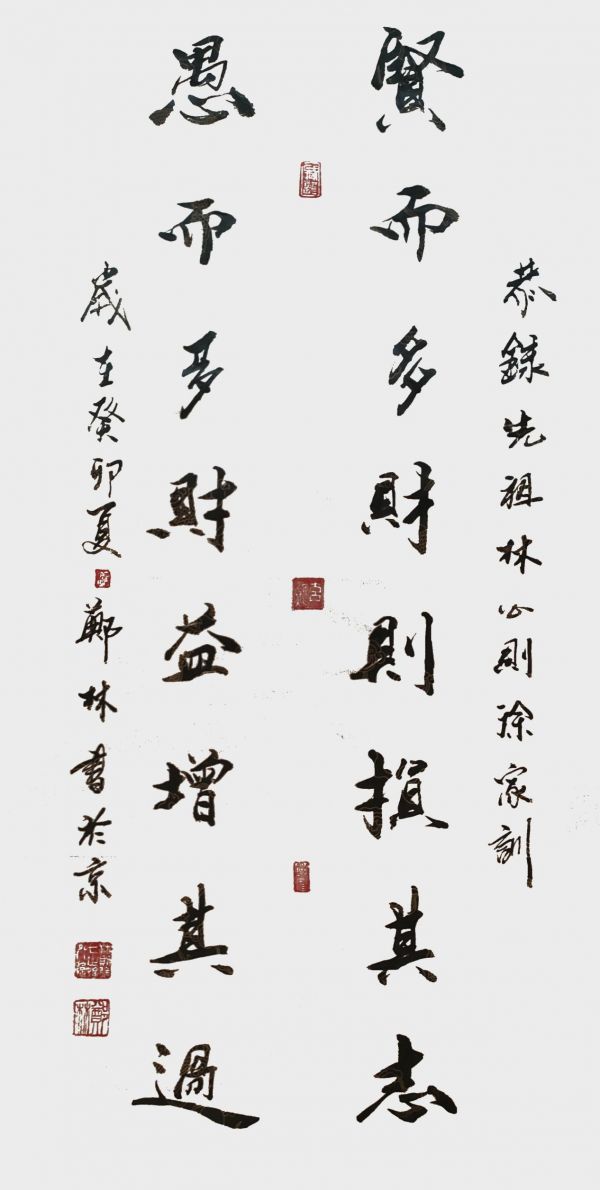 恭錄先祖林公則徐家訓
賢而多財則損其志
愚而多財益增其過
歲在癸卯夏
鄭林書於京